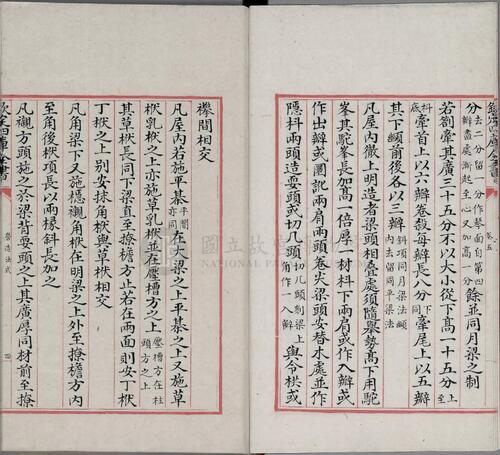 欽定四庫全書
卷五
分去二分留一分作拳面自第四瓣盡處漸起至心又加高一分餘並同月梁之制
若劄牽其廣三十五分不以大小從下高一十五分上至
枓底牽首上以六瓣卷殺每瓣長八分下同牽尾上以五瓣
其下䫜前後各以三瓣斜項同月梁法䫜内去留同平梁法
凡屋内徹上明造者梁頭相疊處須隨舉勢高下用駝
峯其駝峯長加高一倍厚一材枓下兩肩或作入瓣或
作出瓣或圜訛兩肩兩頭卷尖梁頭安替木處並作
隱枓兩頭造耍頭或切几頭切几頭刻梁上角作一入瓣與令栱或
襻間相交
凡屋内若施平棊平闇亦同在大梁之上平棊之上又施草
栿乳栿之上亦施草乳栿並在壓槽方之上壓槽方在柱頭方之上
其草栿長同下梁直至撩檐方止若在兩面則安丁栿
丁栿之上别安抹角栿與草栿相交
凡角梁下又施穩襯角栿在明梁之上外至撩檐方内
至角後栿項長以兩椽斜長加之
凡襯方頭施之於梁背耍頭之上其廣厚同材前至撩
欽定四庫全書
營造法式
四